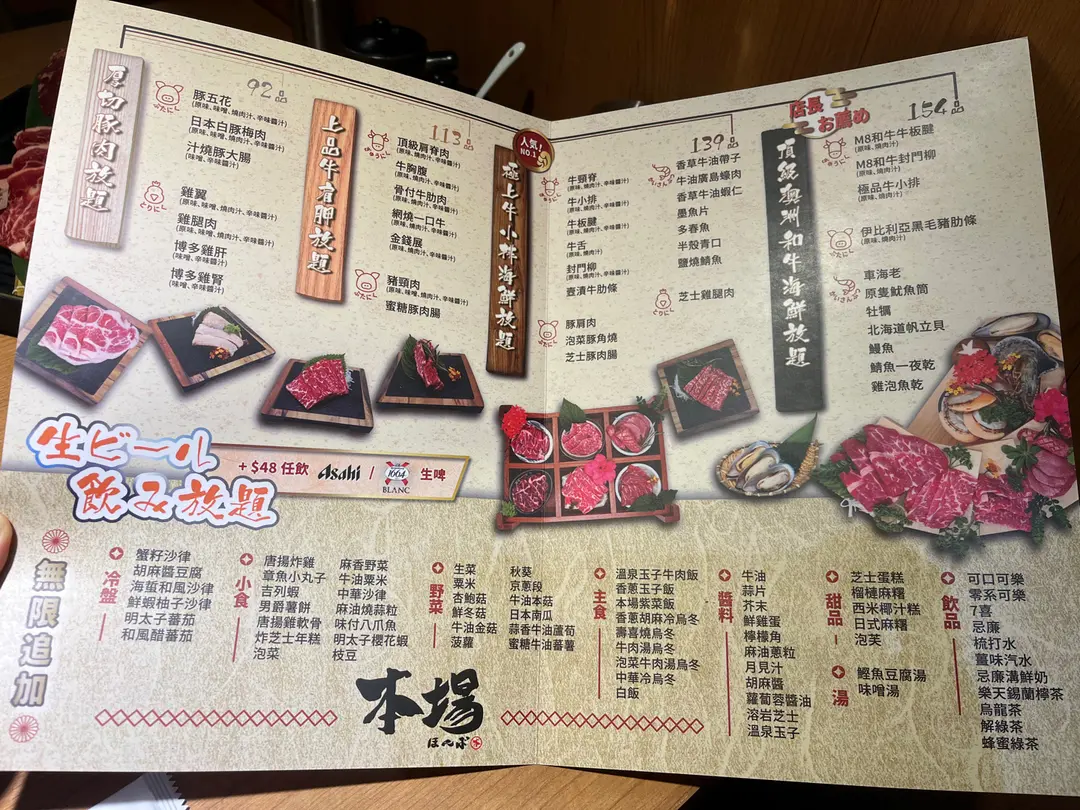 厚切豚肉放題
92品
豚五花
(原味、味噌、燒肉汁、辛味醬汁)
日本白豚梅肉
(原味、味噌、燒肉汁、辛味醬汁)
汁燒豚大腸
(味噌、辛味醬汁)
雞翼
(原味、味噌、燒肉汁、辛味醬汁)
雞腿肉
(原味、味噌、燒肉汁、辛味醬汁)
博多雞肝
(味噌、辛味醬汁)
博多雞腎
(味噌、辛味醬汁)
上品牛肩胛放題
113品
頂級肩脊肉
(原味、味噌、燒肉汁、辛味醬汁)
牛胸腹
(原味、味噌、燒肉汁、辛味醬汁)
骨付牛肋肉
(原味、味噌、燒肉汁、辛味醬汁)
網燒一口牛
(原味、味噌、燒肉汁、辛味醬汁)
金錢展
(原味、味噌、燒肉汁、辛味醬汁)
豬頸肉
(原味、味噌、燒肉汁、辛味醬汁)
蜜糖豚肉腸
人気!
NO.1
極上牛小排海鮮放題
139品
牛頸脊
(原味、燒肉汁、辛味醬汁)
牛小排
(原味、燒肉汁、辛味醬汁)
牛板腱
(原味、燒肉汁、辛味醬汁)
牛舌
(原味、燒肉汁、辛味醬汁)
封門柳
(原味、燒肉汁、辛味醬汁)
壺漬牛肋條
豚肩肉
泡菜豚角燒
芝士豚肉腸
香草牛油帶子
牛油廣島蠔肉
香草牛油蝦仁
墨魚片
多春魚
半殼青口
鹽燒鯖魚
芝士雞腿肉
店長お薦め
頂級澳洲和牛海鮮放題
154品
M8和牛牛板腱
(原味、燒肉汁)
M8和牛封門柳
(原味、燒肉汁)
極品牛小排
(原味、燒肉汁)
伊比利亞黑毛豬肋條
(原味、燒肉汁)
車海老
原隻魷魚筒
牡蠣
北海道帆立貝
鰻魚
鯖魚一夜乾
雞泡魚乾
生ビール
飲み放題
+ $48 任飲 Asahi / 1664 BLANC 生啤
無限追加
冷盤
蟹籽沙律
胡麻醬豆腐
海蜇和風沙律
鮮蝦柚子沙律
明太子蕃茄
和風醋蕃茄
小食
唐揚炸雞
章魚小丸子
吉列蝦
男爵薯餅
唐揚雞軟骨
炸芝士年糕
泡菜
麻香野菜
牛油粟米
中華沙律
麻油燒蒜粒
味付八爪魚
明太子櫻花蝦
枝豆
野菜
生菜
粟米
杏鮑菇
鮮冬菇
牛油金菇
菠蘿
秋葵
京蔥段
牛油本菇
日本南瓜
蒜香牛油蘆荀
蜜糖牛油蕃薯
主食
溫泉玉子牛肉飯
香蔥玉子飯
本場紫菜飯
香蔥胡麻冷烏冬
壽喜燒烏冬
牛肉湯烏冬
泡菜牛肉湯烏冬
中華冷烏冬
白飯
醬料
牛油
蒜片
芥末
鮮雞蛋
檸檬角
麻油蔥粒
月見汁
胡麻醬
蘿蔔蓉醬油
溶岩芝士
溫泉玉子
甜品
芝士蛋糕
榴槤麻糬
西米椰汁糕
日式麻糬
泡芙
湯
鰹魚豆腐湯
味噌湯
飲品
可口可樂
零系可樂
7喜
忌廉
梳打水
薑味汽水
忌廉溝鮮奶
樂天錫蘭檸茶
烏龍茶
解綠茶
蜂蜜綠茶
本場
ほんば